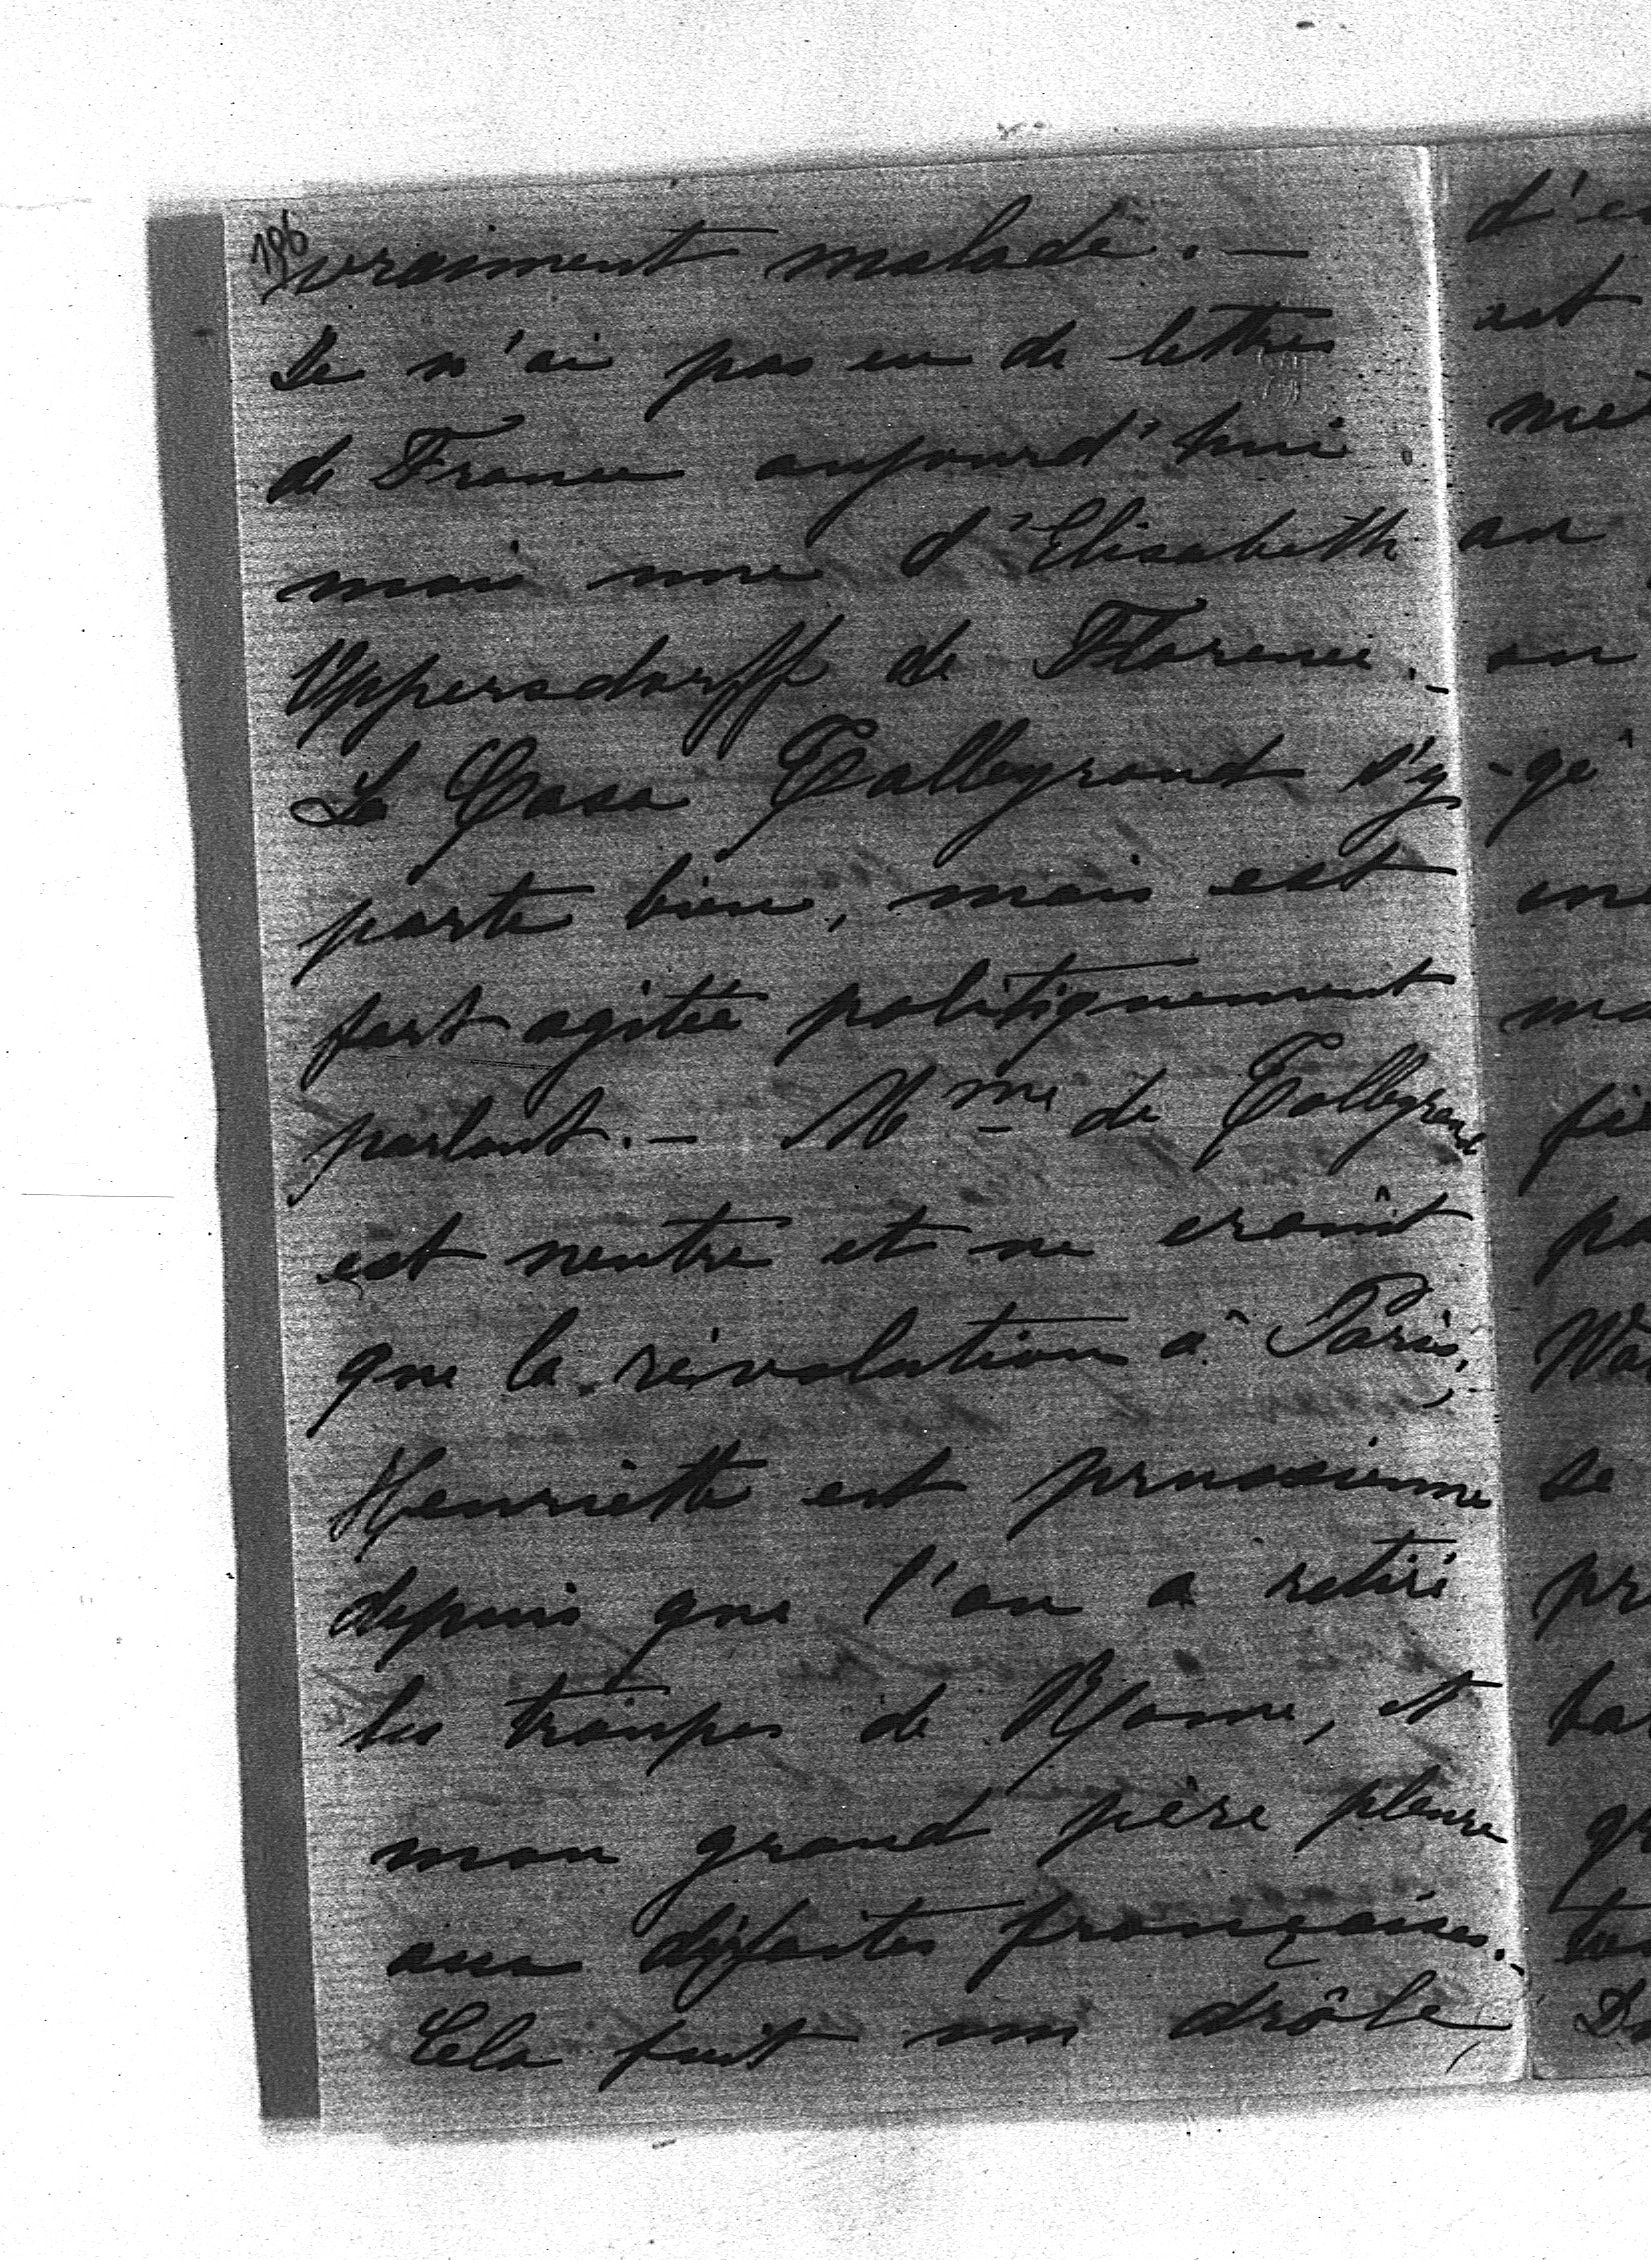 196
vraiment malade. —
Je n'ai pas eu de lettres
de France aujourd'hui.
mais une d'Elisabeth
Oppersdorff de Florence. -
La Casa Talleyrand s'y
porte bien, mais est
fort agitée politiquement
parlant. — Mme de Talleyrand
est neutre et ne craint
que la révolution à Paris,
Henriette est prussienne
depuis que l'on a retiré
les troupes de Rome, et
mon grand père pleure
aux défaites françaises. -
Cela fait un drôle
est
an
on
se